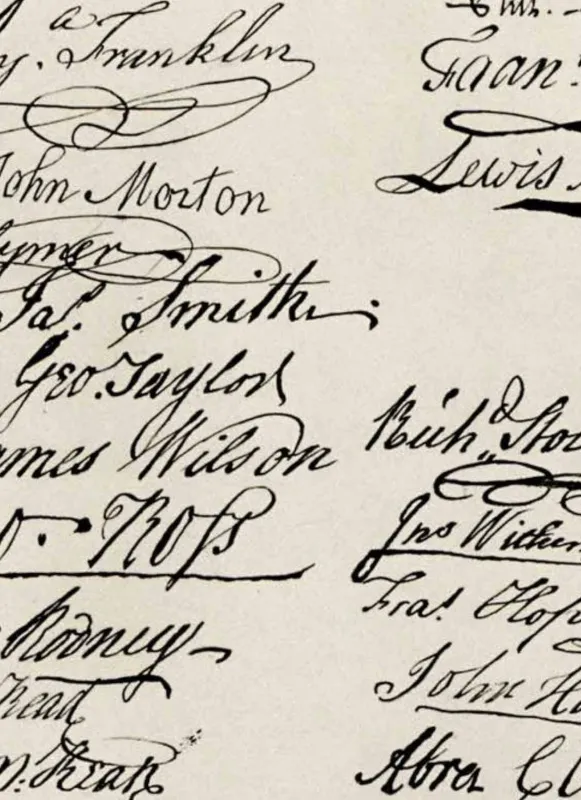 y. Franklin
John Morton
lymer
Ja.s Smith.
Geo. Taylor
ames Wilson
o. Ross
Rodney
Read
M:Kean
Fran.s
Lewis
Rich.d Stoc
Jno Wither
Fra.s Hop
John H
Abra Cl